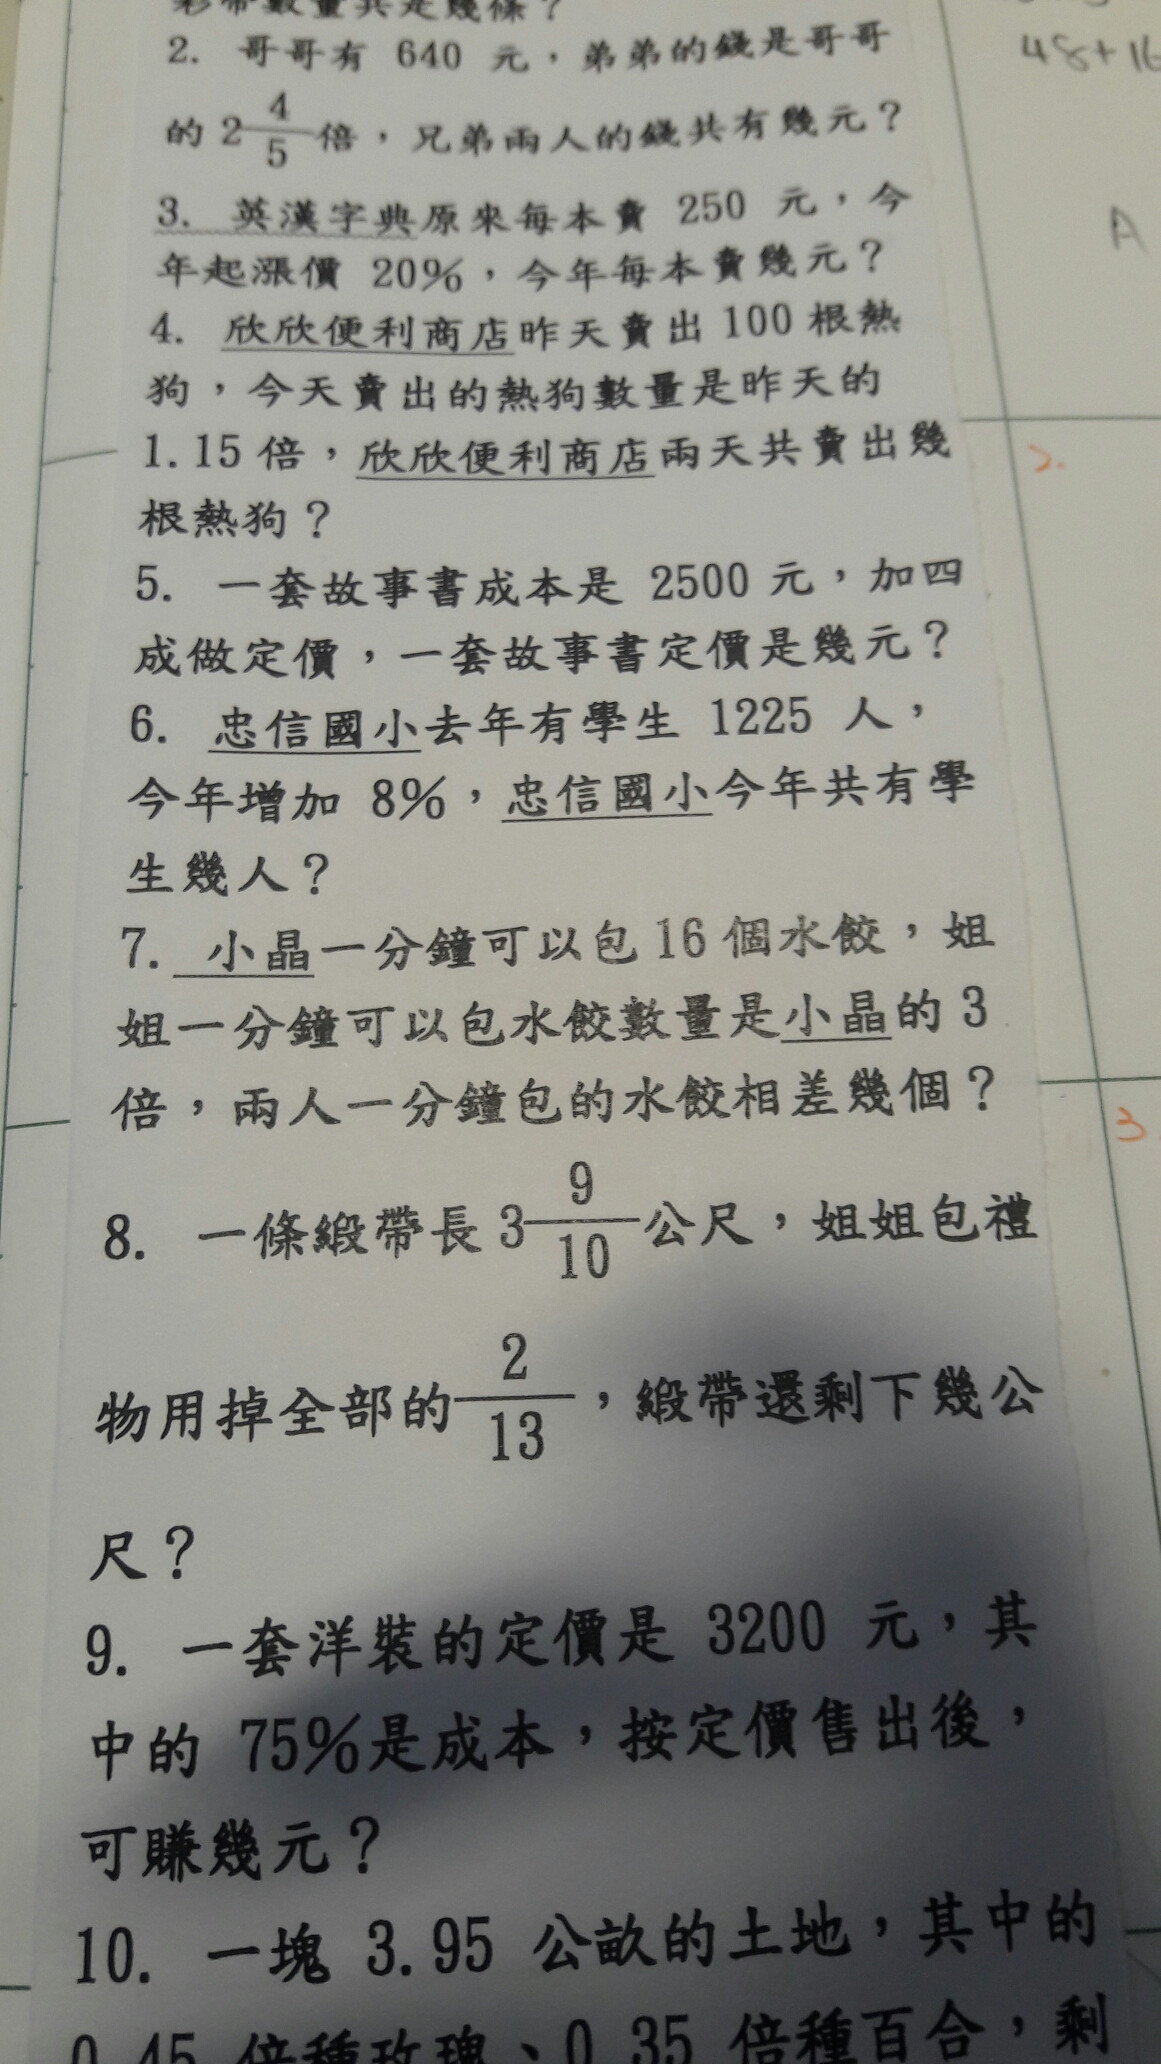 彩帶數量共是幾條？
2. 哥哥有 640 元，弟弟的錢是哥哥
48+16
的 2 4/5 倍，兄弟兩人的錢共有幾元？
3. 英漢字典原來每本賣 250 元，今
A
年起漲價 20%，今年每本賣幾元？
4. 欣欣便利商店昨天賣出 100 根熱
狗，今天賣出的熱狗數量是昨天的
1.15 倍，欣欣便利商店兩天共賣出幾
2.
根熱狗？
5. 一套故事書成本是 2500 元，加四
成做定價，一套故事書定價是幾元？
6. 忠信國小去年有學生 1225 人，
今年增加 8%，忠信國小今年共有學
生幾人？
7. 小晶一分鐘可以包 16 個水餃，姐
姐一分鐘可以包水餃數量是小晶的 3
倍，兩人一分鐘包的水餃相差幾個？
3
8. 一條緞帶長 3 9/10 公尺，姐姐包禮
物用掉全部的 2/13，緞帶還剩下幾公
尺？
9. 一套洋裝的定價是 3200 元，其
中的 75%是成本，按定價售出後，
可賺幾元？
10. 一塊 3.95 公畝的土地，其中的
0.45 倍種玫瑰、0.35 倍種百合，剩